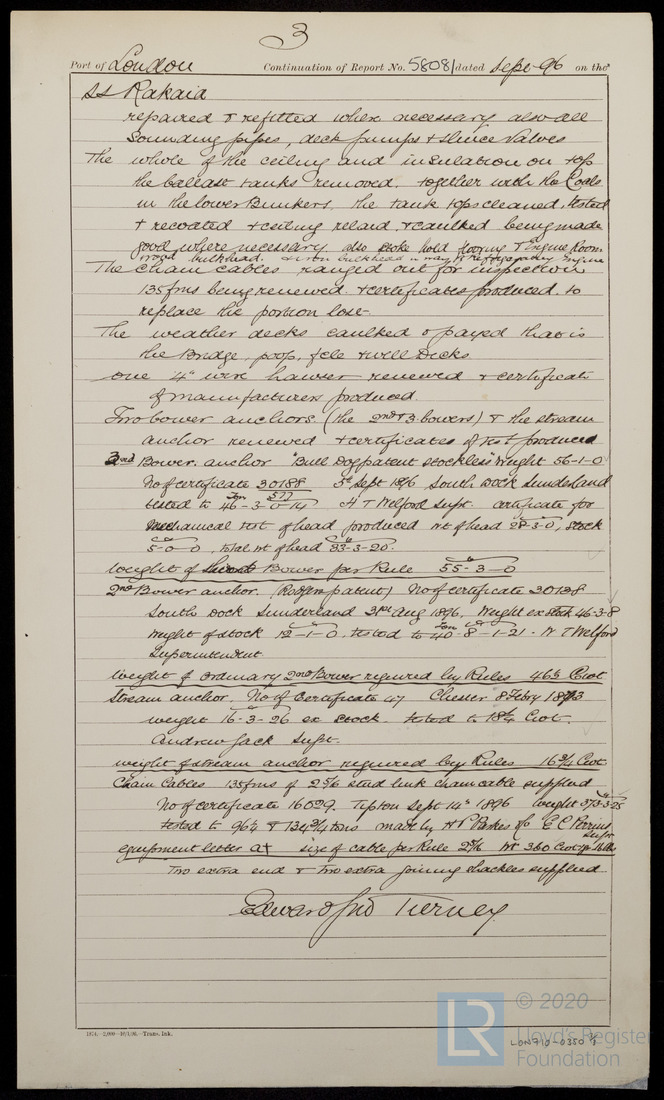 3
Port of London Continuation of Report No. 58081 dated Sept 96 on the
SS Rakaia
repaired & refitted where necessary also all
Sounding pipes, deck pumps & Sluice Valves
The whole of the ceiling and insulation on top
the ballast tanks removed, together with the Coals
in the lower Bunkers, the tank tops cleaned, tested
& recoated & ceiling relaid & caulked being made
good where necessary also stoke hold flooring & Engine Room
wood bulkhead. & iron bulkhead in way of refrigerating Engine
The Chain Cables ranged out for inspection
135 fms being renewed & certificates produced. to
replace the portion lost
The weather decks caulked & payed that is
the Bridge, poop, fcle & well Decks
One "4" wire hawser renewed & certificate
of manufacturers produced
Two bower anchors (the 2nd & 3 bowers) & the stream
anchor renewed & certificates of test produced
3rd Bower anchor "Bull Dog patent stockless" Weight 56-1-0
No of certificate 30188 5th Sept 1896 South Dock Sunderland
577
tested to 46-3-0-14 H T Welford Supt. certificate for
Mechanical test of head produced wt of head 28-3-0, stock
5-0-0, total wt of head 33-3-20.
Weight of Bower per Rule 55-3-0
2nd Bower anchor. (Rodgers patent) No of certificate 30138
South Dock Sunderland 31st Aug 1896. Weight ex stock 46-3-8
Weight of stock 12-1-0. tested to 40-8-1-21 - Welford
Superintendent
Weight of ordinary 2nd Bower required by Rules 46½ Cwt
Stream anchor. No of Certificate 47 Chester 8 Febry
weight 16-3-26 ex stock. tested to 18¾ Cwt.
Andrew Jack Supt.
weight of stream anchor required by Rules 16¾ Cwt
Chain Cables 135 fms of 2 5/16 stud link chain cable supplied
No of certificate 16029. Tipton Sept 14th 1896 weight 373-3-25
tested to 96¼ & 134¾ tons made by H P Parkes & Co E C Perrins
Supr
equipment letter at size of cable per Rule 2 5/16 wt 360 Cwt
Two extra end & Two extra joining shackles supplied
Edward Jno Tierney
1874.-2,000-10/1/96.-Trans. Ink.
LR © 2020
Lloyd's Register
Foundation
LON710-0350